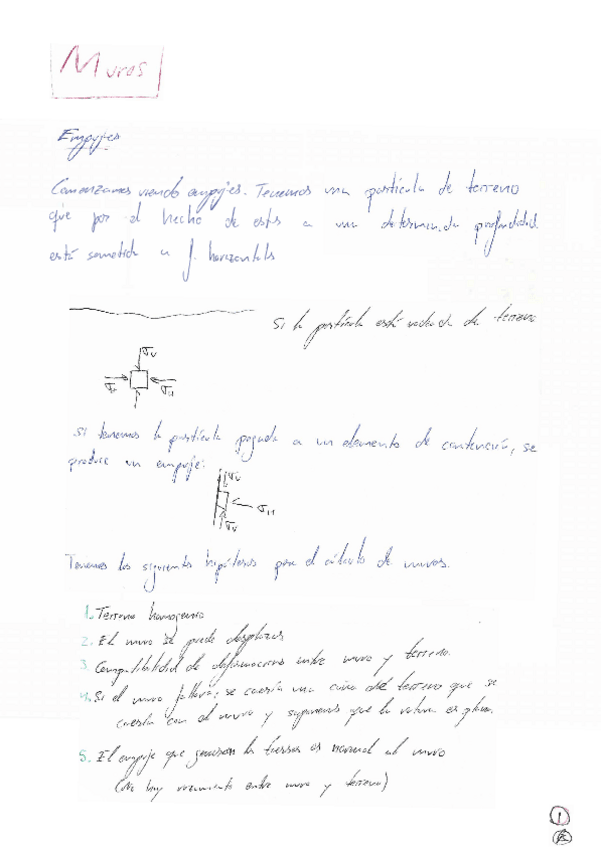 Muros
Empujes
Comenzamos viendo empujes. Tenemos una partícula de terreno
que por el hecho de estar a una determinada profundidad
está sometida a f. horizontales
Si la partícula está rodeada de terreno
σv
σH
σH
Si tenemos la partícula pegada a un elemento de contención, se
produce un empuje:
σv
σH
σv
Tenemos las siguientes hipótesis para el cálculo de muros.
1. Terreno homogéneo
2. El muro se puede desplazar
3. Compatibilidad de deformaciones entre muro y terreno.
4. Si el muro fallara; se caería una cuña del terreno que se
caería con el muro y suponemos que la rotura es plana.
5. El empuje que generan las tierras es normal al muro
(No hay rozamiento entre muro y terreno)
1